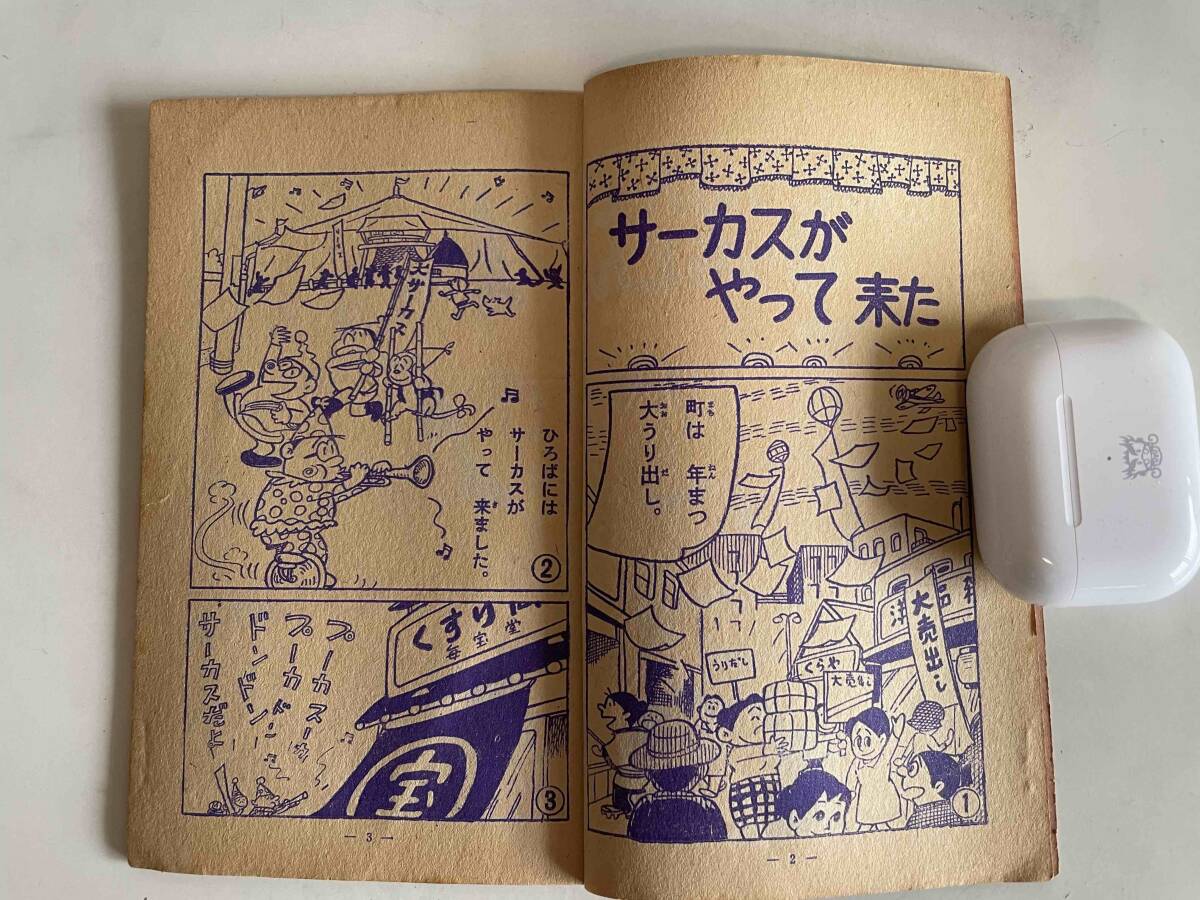 サーカスが
やって来た
町は年まつ
大うり出し。
うりだし
くらや
大売出し
大売出し
①
— 2 —
大サーカス
ひろばには
サーカスが
やって来ました。
②
くすり
宝堂
宝
プーカスーカ
プーカ
ドンドン
サーカスだよ
③
— 3 —